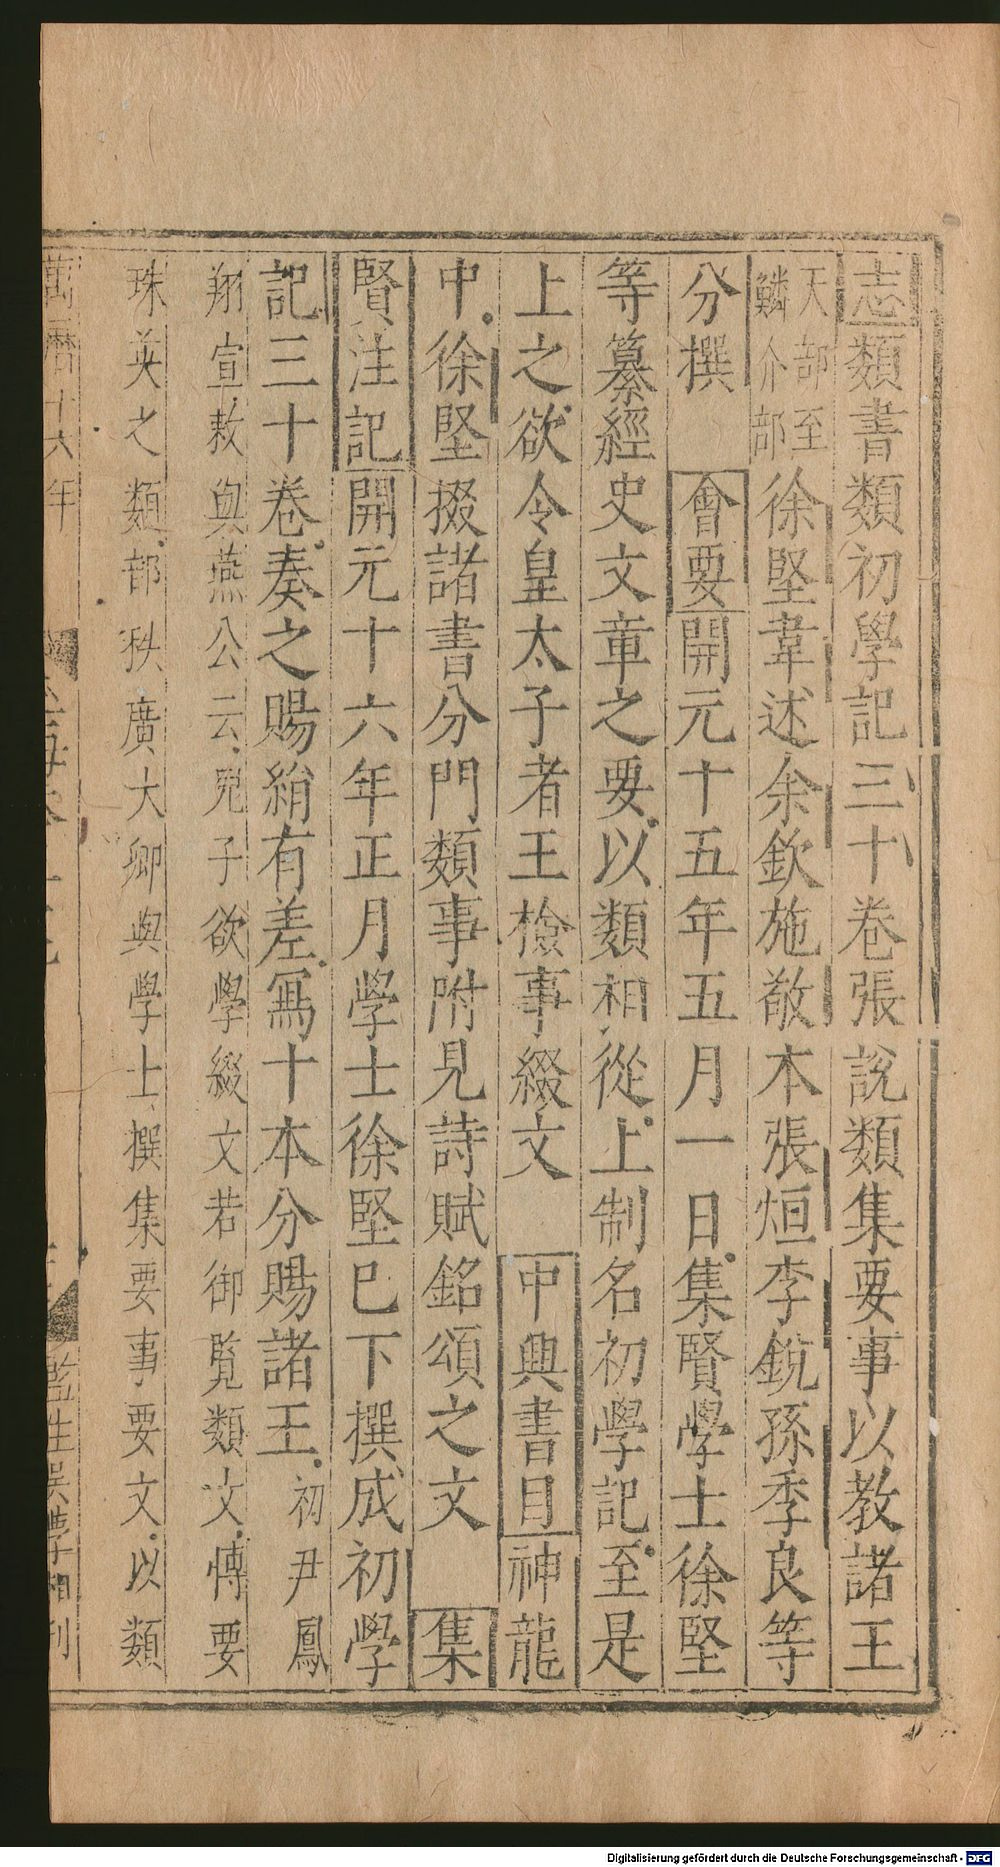 志類書類初學記三十卷張說類集要事以敎諸王
天部至
鱗介部
徐堅韋述余欽施敬本張烜李銳孫季良等
分撰 會要開元十五年五月一日集賢學士徐堅
等纂經史文章之要以類相從上制名初學記至是
上之欲令皇太子者王檢事綴文 中興書目神龍
中徐堅掇諸書分門類事附見詩賦銘頌之文 集
賢注記開元十六年正月學士徐堅已下撰成初學
記三十卷奏之賜絹有差寫十本分賜諸王初尹鳳
翔宣敕與燕公云兒子欲學綴文若御覽類文博要
珠英之類部秩廣大卿與學士撰集要事要文以類
萬曆十六年
監生吳學相刊
Digitalisierung gefördert durch die Deutsche Forschungsgemeinschaft - DFG